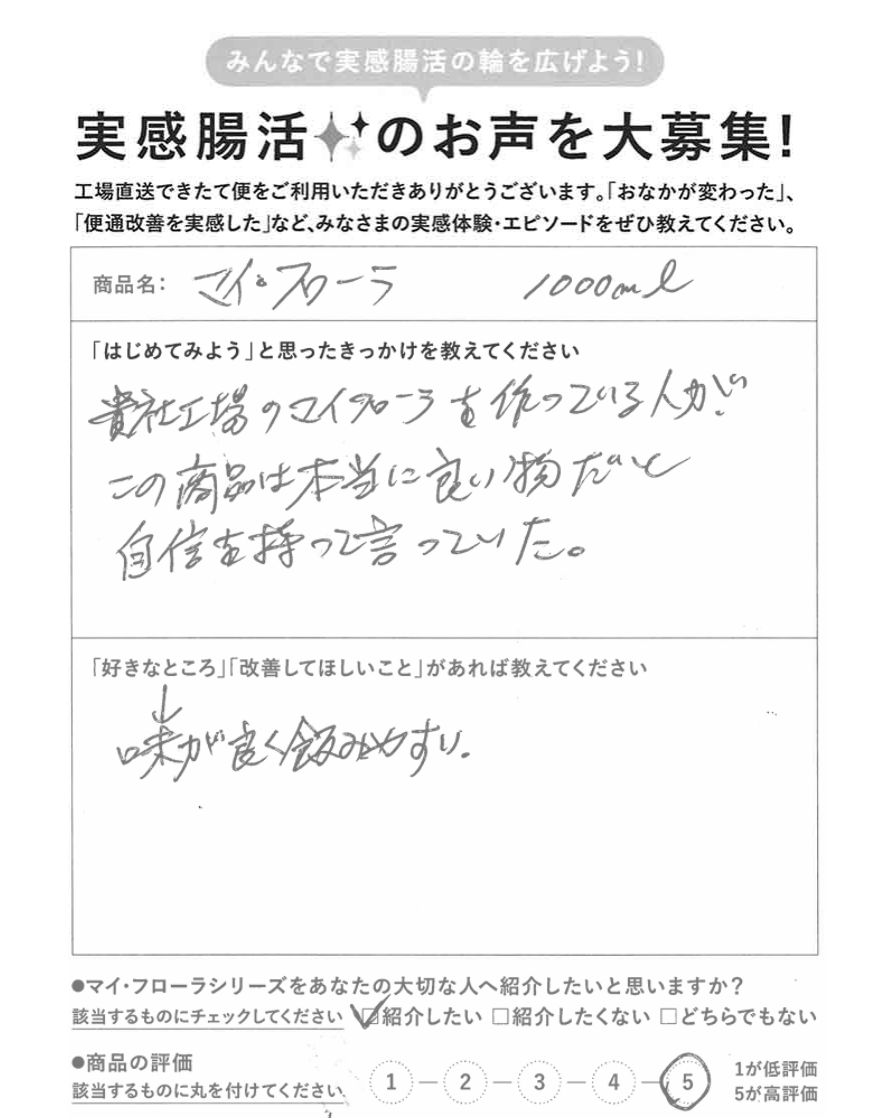 みんなで実感腸活の輪を広げよう!
実感腸活のお声を大募集!
工場直送できたて便をご利用いただきありがとうございます。「おなかが変わった」、
「便通改善を実感した」など、みなさまの実感体験・エピソードをぜひ教えてください。
商品名: マイ・フローラ 1000ml
「はじめてみよう」と思ったきっかけを教えてください
貴社工場のマイフローラを作っている人が
この商品は本当に良い物だと
自信を持って言っていた。
「好きなところ」「改善してほしいこと」があれば教えてください
↓
味が良く飲みやすい.
●マイ・フローラシリーズをあなたの大切な人へ紹介したいと思いますか?
該当するものにチェックしてください ☑紹介したい □紹介したくない □どちらでもない
●商品の評価
該当するものに丸を付けてください
1 — 2 — 3 — 4 — 5
1が低評価
5が高評価